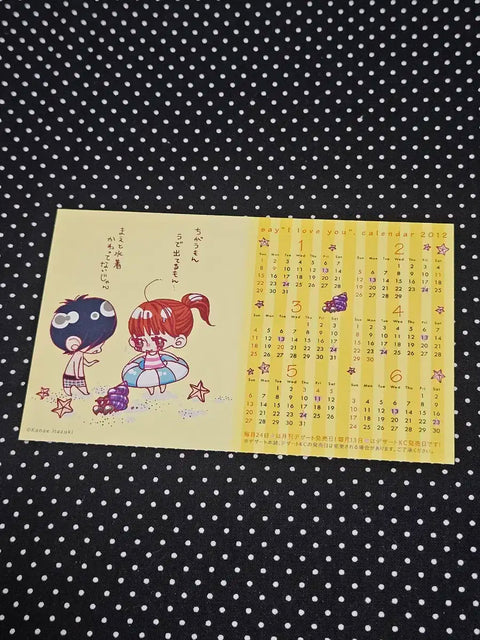 ちがうもん
うで出てるもん…
まえと水着
かわってないじゃん
©Kanae Hazuki
say "I love you". calendar 2012
1
Sun Mon Tue Wed Thu Fri Sat
1 2 3 4 5 6 7
8 9 10 11 12 13 14
15 16 17 18 19 20 21
22 23 24 25 26 27 28
29 30 31
2
Sun Mon Tue Wed Thu Fri Sat
1 2 3 4
5 6 7 8 9 10 11
12 13 14 15 16 17 18
19 20 21 22 23 24 25
26 27 28 29
3
Sun Mon Tue Wed Thu Fri Sat
1 2 3
4 5 6 7 8 9 10
11 12 13 14 15 16 17
18 19 20 21 22 23 24
25 26 27 28 29 30 31
4
Sun Mon Tue Wed Thu Fri Sat
1 2 3 4 5 6 7
8 9 10 11 12 13 14
15 16 17 18 19 20 21
22 23 24 25 26 27 28
29 30
5
Sun Mon Tue Wed Thu Fri Sat
1 2 3 4 5
6 7 8 9 10 11 12
13 14 15 16 17 18 19
20 21 22 23 24 25 26
27 28 29 30 31
6
Sun Mon Tue Wed Thu Fri Sat
1 2
3 4 5 6 7 8 9
10 11 12 13 14 15 16
17 18 19 20 21 22 23
24 25 26 27 28 29 30
毎月24日☆は月刊デザート発売日!毎月13日☆はデザートKC発売日です!
※デザート本誌、デザートKCの発売日は変更される場合があります。ご了承ください。